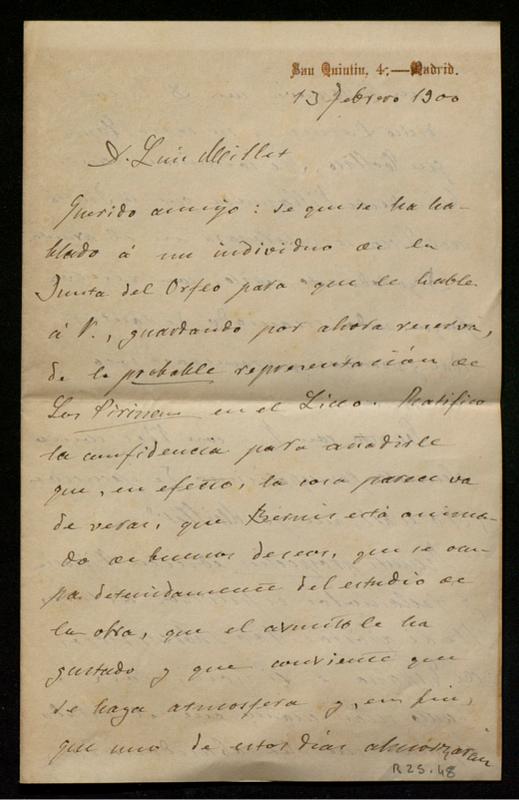 San Quintin, 4.—Madrid.
13 febrero 1900
D. Luis Millet
Querido amigo: se que se ha ha-
blado á un individuo de la
Junta del Orfeo para que le hable
á V., guardando por ahora reserva,
de la probable representación de
Los Pirineos en el Liceo. Ratifico
la confidencia para añadirle
que, en efecto, la cosa parece va
de veras, que Bernis está anima-
do de buenos deseos, que se ocu-
pa detenidamente del estudio de
la obra, que el le ha
gustado y que conviene que
se haga atmosfera y, en fin,
que uno de estos dias almorzarán
R25.48